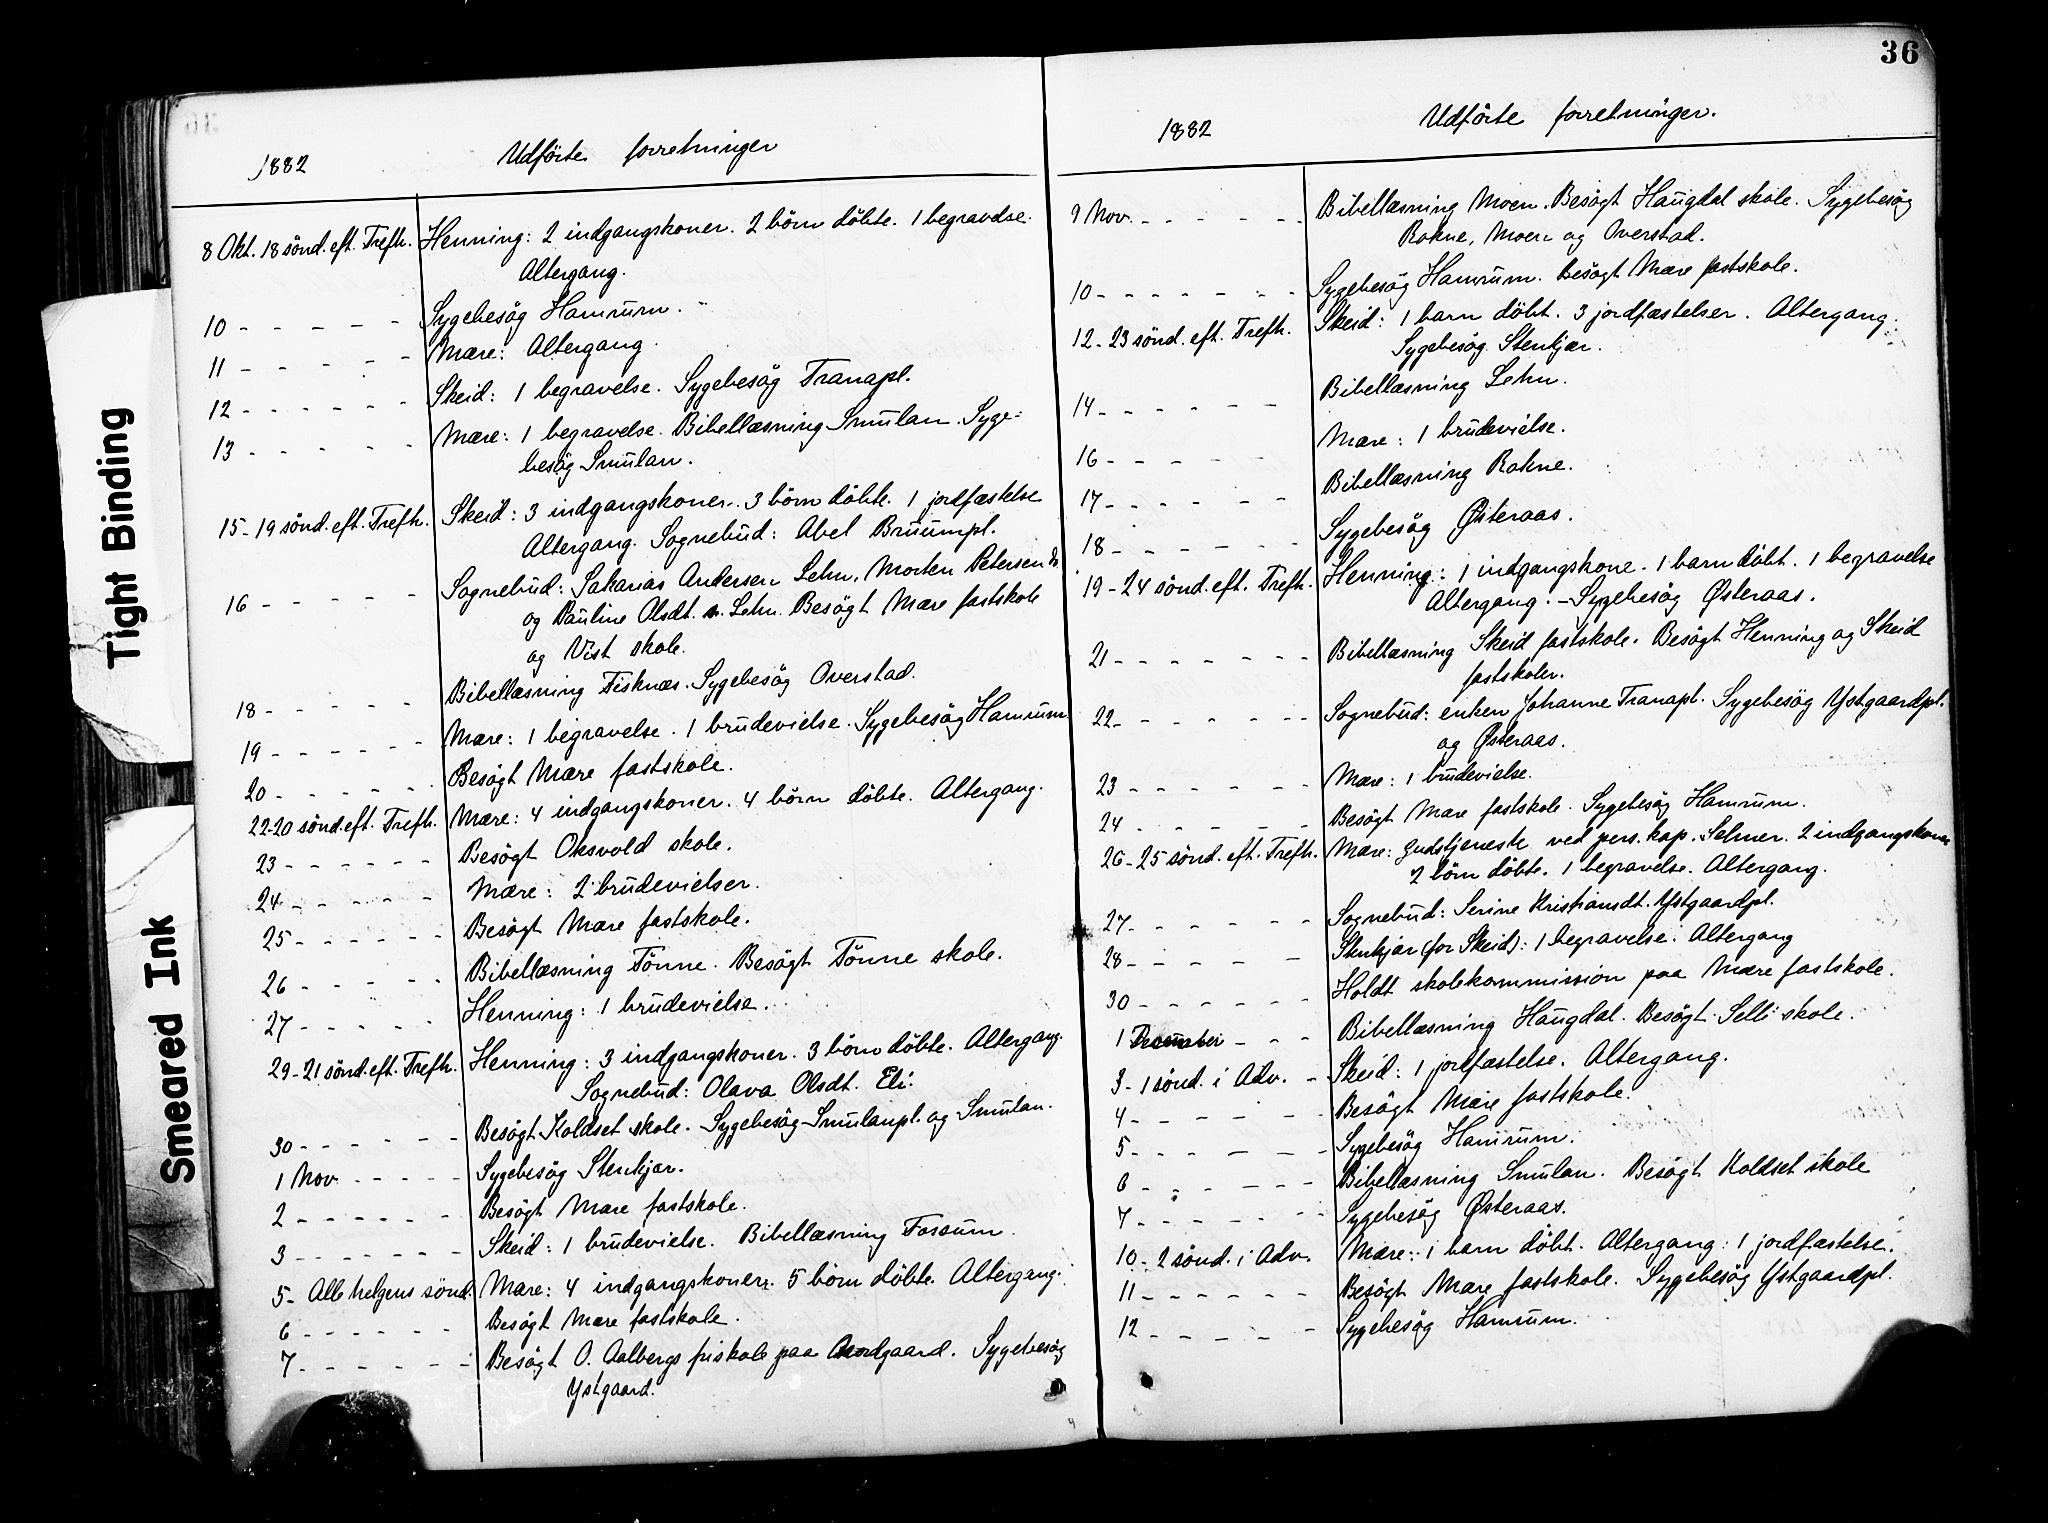 Tight Binding
Smeared Ink
1882 Udførte forretninger
8 Okt. 18 sønd. eft. Trefh. Henning: 2 indgangskoner. 2 børn døbte. 1 begravelse.
Altergang.
10 - - - - - Sygebesøg Hamrum.
11 - - - - - Mære: Altergang.
12 - - - - - - Skeid: 1 begravelse. Sygebesøg Tranapl.
13 - - - - - Mære: 1 begravelse. Bibellæsning Smulan. Syge-
besøg Smulan.
15 - 19 sønd. eft. Trefh. Skeid: 3 indgangskoner. 3 børn døbte. 1 jordfæstelse
Altergang. Sognebud: Abel Bruumpl.
16 - - - - - Sognebud: Sakarias Andersen Lehn, Morten Petersen
og Pauline Olsdt. Lehn. Besøgt Mære fastskole
og Vist skole.
18 - - - - - Bibellæsning Fisknæs. Sygebesøg Overstad.
19 - - - - - - Mære: 1 begravelse. 1 brudevielse. Sygebesøg Hamrum
20 - - - - - - Besøgt Mære fastskole.
22 - 20 sønd. eft. Trefh. Mære: 4 indgangskoner. 4 børn døbte. Altergang.
23 - - - - - - Besøgt Oksvold skole.
24 - - - - - Mære: 2 brudevielser.
25 - - - - - - Besøgt Mære fastskole.
26 - - - - - Bibellæsning Tønne. Besøgt Tønne skole.
27 - - - - - Henning: 1 brudevielse.
29 - 21 sønd. eft. Trefh. Henning: 3 indgangskoner. 3 børn døbte. Altergang.
Sognebud: Olava Olsdt. Eli.
30 - - - - - - Besøgt Koldset skole. Sygebesøg Smulanpl. og Smulan.
1 Nov. - - - - - Sygebesøg Stenkjær.
2 - - - - - - Besøgt Mære fastskole.
3 - - - - - - - Skeid: 1 brudevielse. Bibellæsning Fossum.
5 - Alle helgens sønd. Mære: 4 indgangskoner. 5 børn døbte. Altergang.
6 - - - - - - Besøgt Mære fastskole.
7 - - - - - - Besøgt O. Aalbergs friskole paa Nordgaard. Sygebesøg
Ystgaard.
36
1882 Udførte forretninger.
9 Nov. - - - - - - Bibellæsning Moen. Besøgt Haugdal skole. Sygebesøg
Rokne, Moen og Overstad.
10 - - - - - - - Sygebesøg Hamrum. Besøgt Mære fastskole.
12 - 23 sønd. eft. Trefh. Skeid: 1 barn døbt. 3 jordfæstelser. Altergang.
Sygebesøg Stenkjær.
14 - - - - - - Bibellæsning Lehn.
16 - - - - - Mære: 1 brudevielse.
17 - - - - - - Bibellæsning Rokne.
18 - - - - - - Sygebesøg Østeraas.
19 - 24 sønd. eft. Trefh. Henning: 1 indgangskone. 1 barn døbt. 1 begravelse
Altergang. - Sygebesøg Østeraas.
21 - - - - - - - Bibellæsning Skeid fastskole. Besøgt Henning og Skeid
fastskoler.
22 - - - - - - - Sognebud: enken Johanne Tranapl. Sygebesøg Ystgaardpl.
og Østeraas.
23 - - - - - - Mære: 1 brudevielse.
24 - - - - - Besøgt Mære fastskole. Sygebesøg Hamrum.
26 - 25 sønd. eft. Trefh. Mære: Gudstjeneste ved pers. kap. Selmer. 2 indgangskoner
2 børn døbte. 1 begravelse. Altergang.
27 - - - - - Sognebud: Serine Kristiansdt. Ystgaardpl.
28 - - - - - Stenkjær (for Skeid): 1 begravelse. Altergang
30 - - - - - - Holdt skolekommission paa Mære fastskole.
1 December - - - Bibellæsning Haugdal. Besøgt Selli skole.
3 - 1 sønd. i Adv. - Skeid: 1 jordfæstelse. Altergang.
4 - - - - - Besøgt Mære fastskole.
5 - - - - - - Sygebesøg Hamrum.
6 - - - - - - Bibellæsning Smulan. Besøgt Koldset skole
7 - - - - - Sygebesøg Østeraas.
10 - 2 sønd. i Adv. Mære: 1 barn døbt. Altergang. 1 jordfæstelse.
11 - - - - - - Besøgt Mære fastskole. Sygebesøg Ystgaardpl.
12 - - - - - Sygebesøg Hamrum.